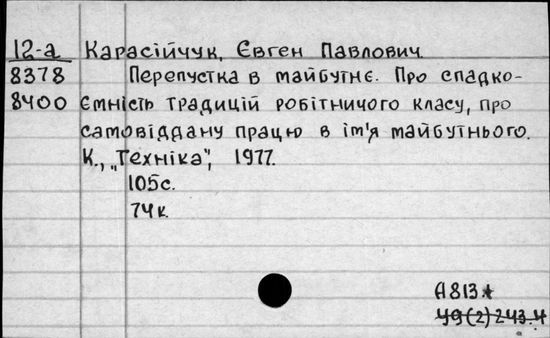 12-а Карасійчук, Євген Павлович
8378 Перепустка в майбутнє. Про спадко-
8400 ємність традицій робітничого класу, про
самовіддану працю в ім'я майбутнього.
К., „Техніка", 1977.
105с.
74к.
А813*
У9(2)243.4